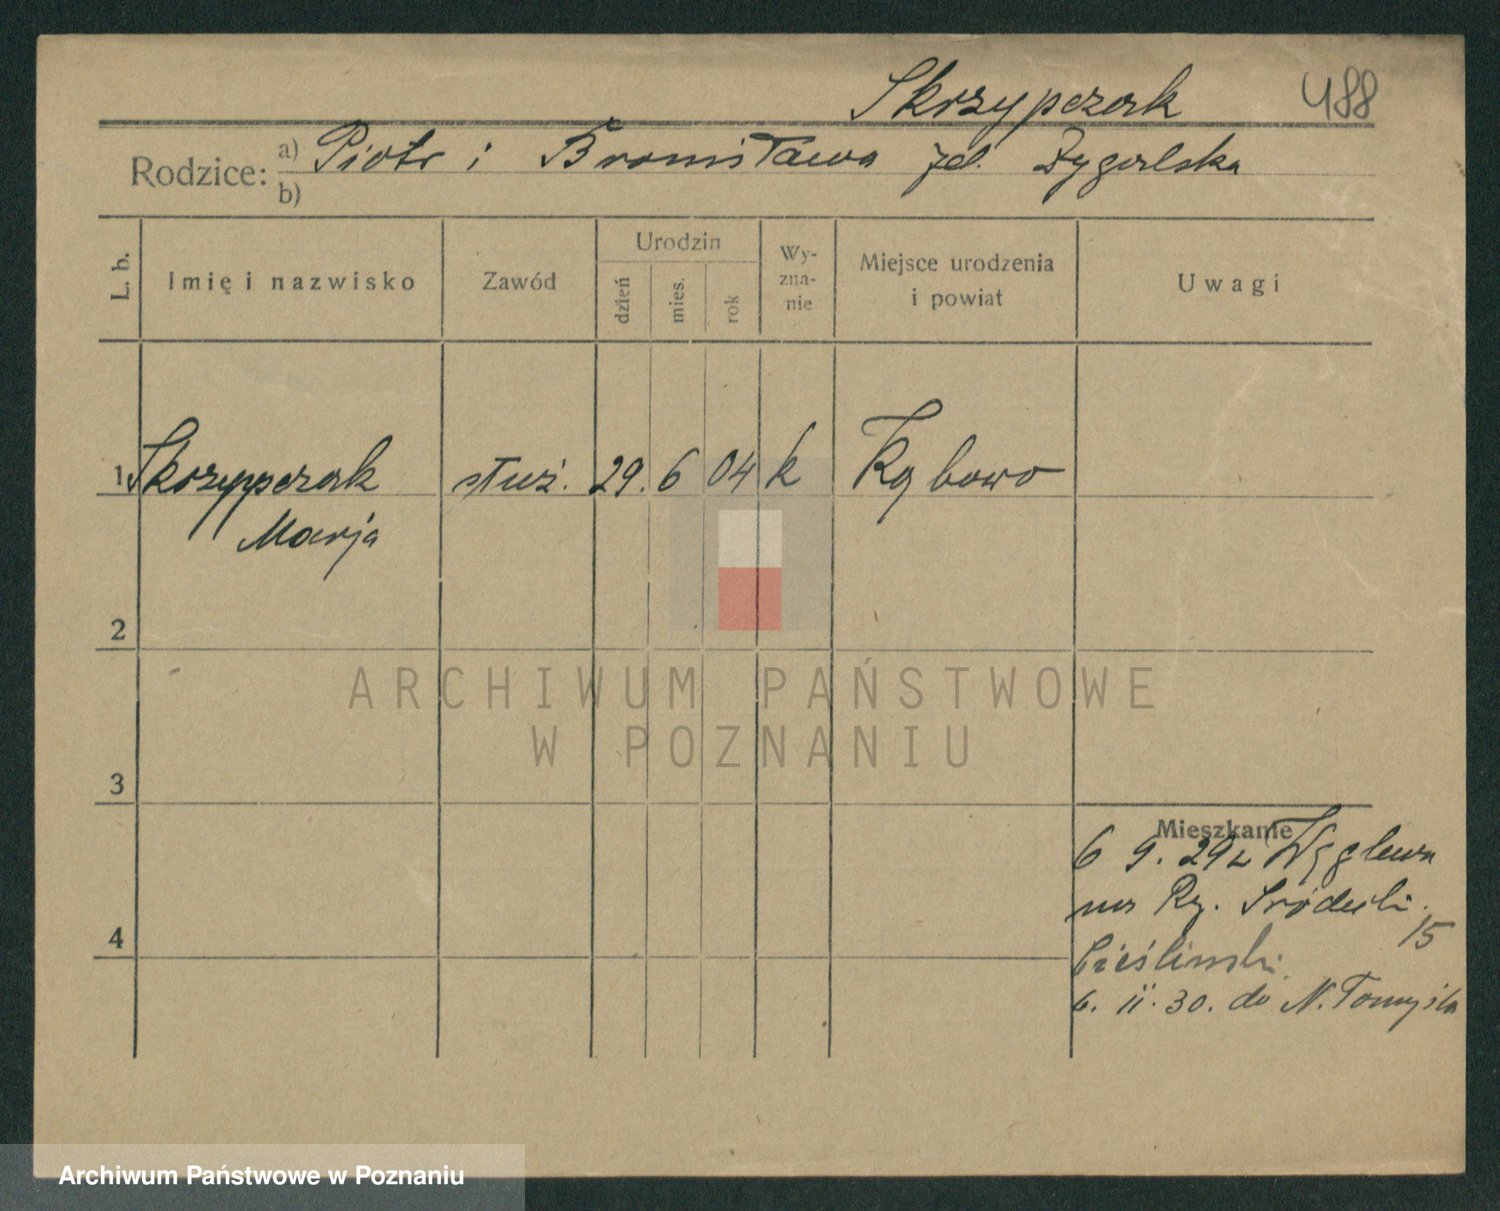 Skrzypczak 488
Rodzice: a) Piotr i Bronisława zd. Zygalska
b)
L. b. Imię i nazwisko Zawód Urodzin dzień mies. rok Wyznanie Miejsce urodzenia i powiat Uwagi
1 Skrzypczak służ. 29. 6 04 k
Marja
2
ARCHIWUM PAŃSTWOWE
W POZNANIU
3
Mieszkanie
6 9. 29 z
na Ry. Śródecki
15
4
Cieśliński
6. II. 30. do N. Tomyśla
Archiwum Państwowe w Poznaniu